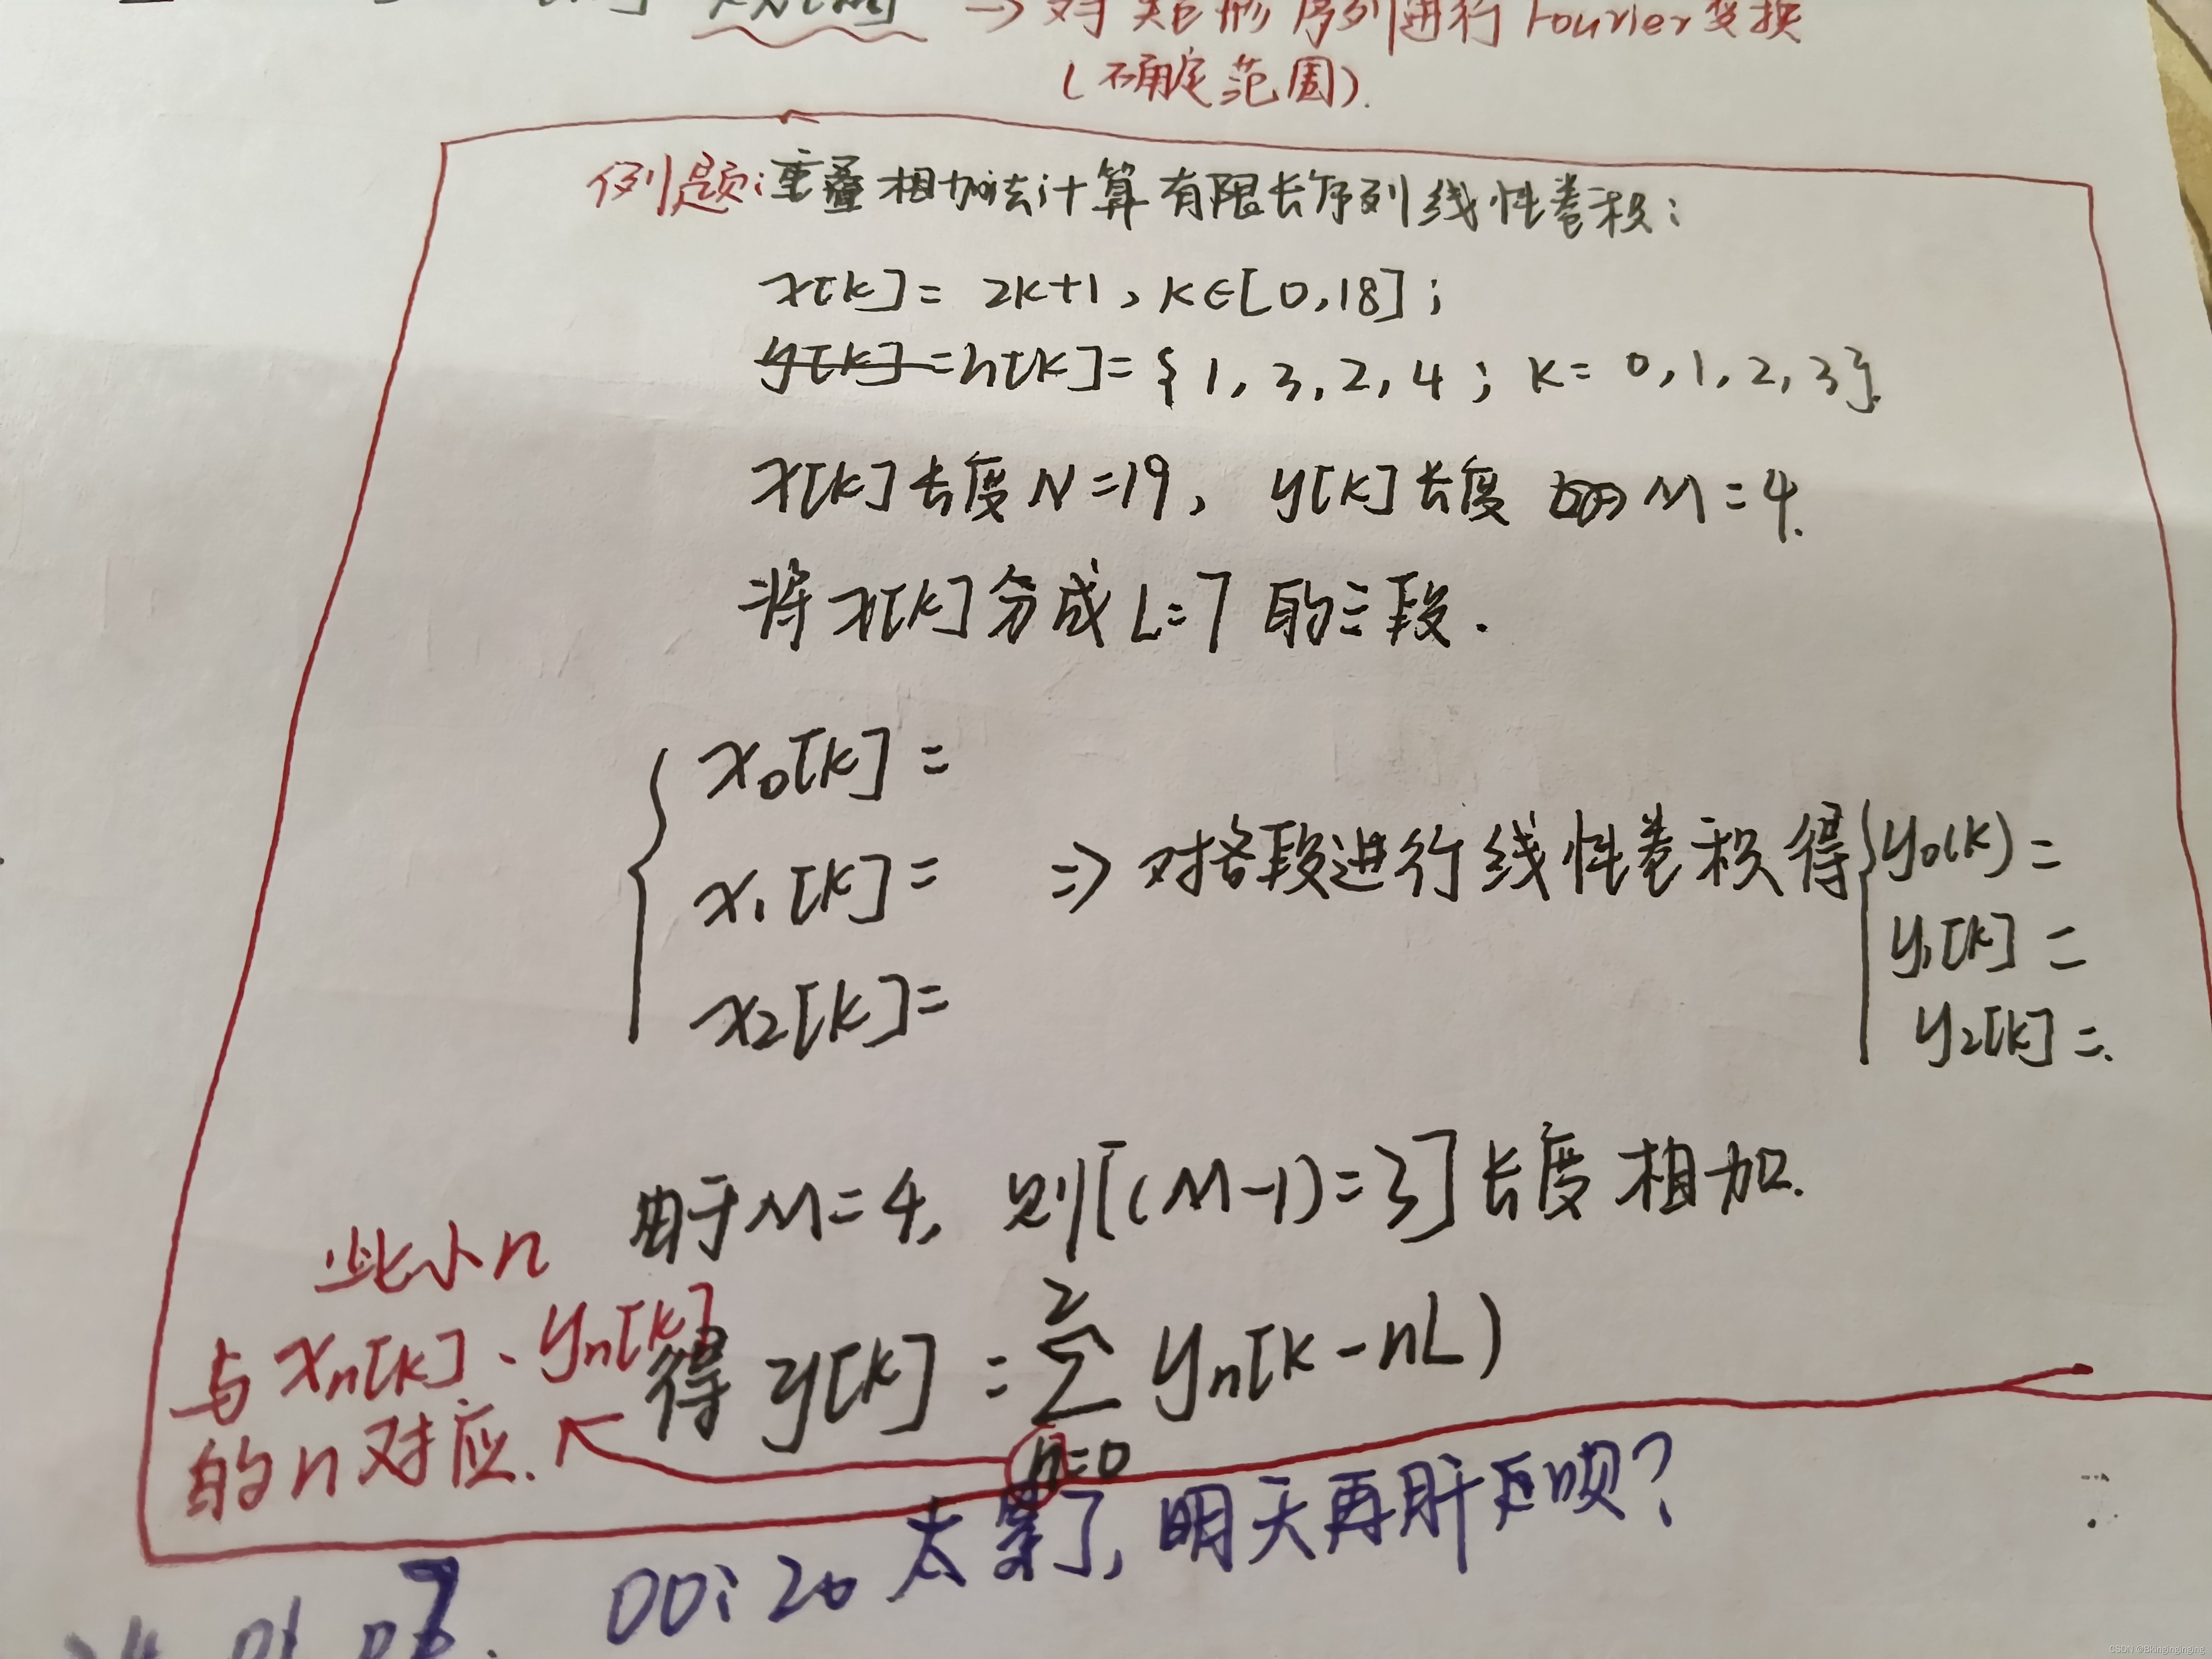 → 对矩形序列进行Fourier变换
(不确定范围).
例题:重叠相加法计算有限长序列线性卷积:
x[k]= 2k+1, k∈[0,18];
y[k]=h[k]={1,3,2,4; k=0,1,2,3}.
x[k]长度N=19, y[k]长度 M=4.
将x[k]分成L=7的三段.
x₀[k]=
x₁[k]=
x₂[k]=
⇒ 对各段进行线性卷积得
y₀(k)=
y₁[k]=
y₂[k]=.
由于M=4, 则[(M-1)=3]长度相加.
得 y[k]=
2
∑ yₙ[k-nL)
n=0
此小n
与xₙ[k]、yₙ[k]
的n对应.
00:20 太累了,明天再肝 呗?
CSDN @Bkinginginging